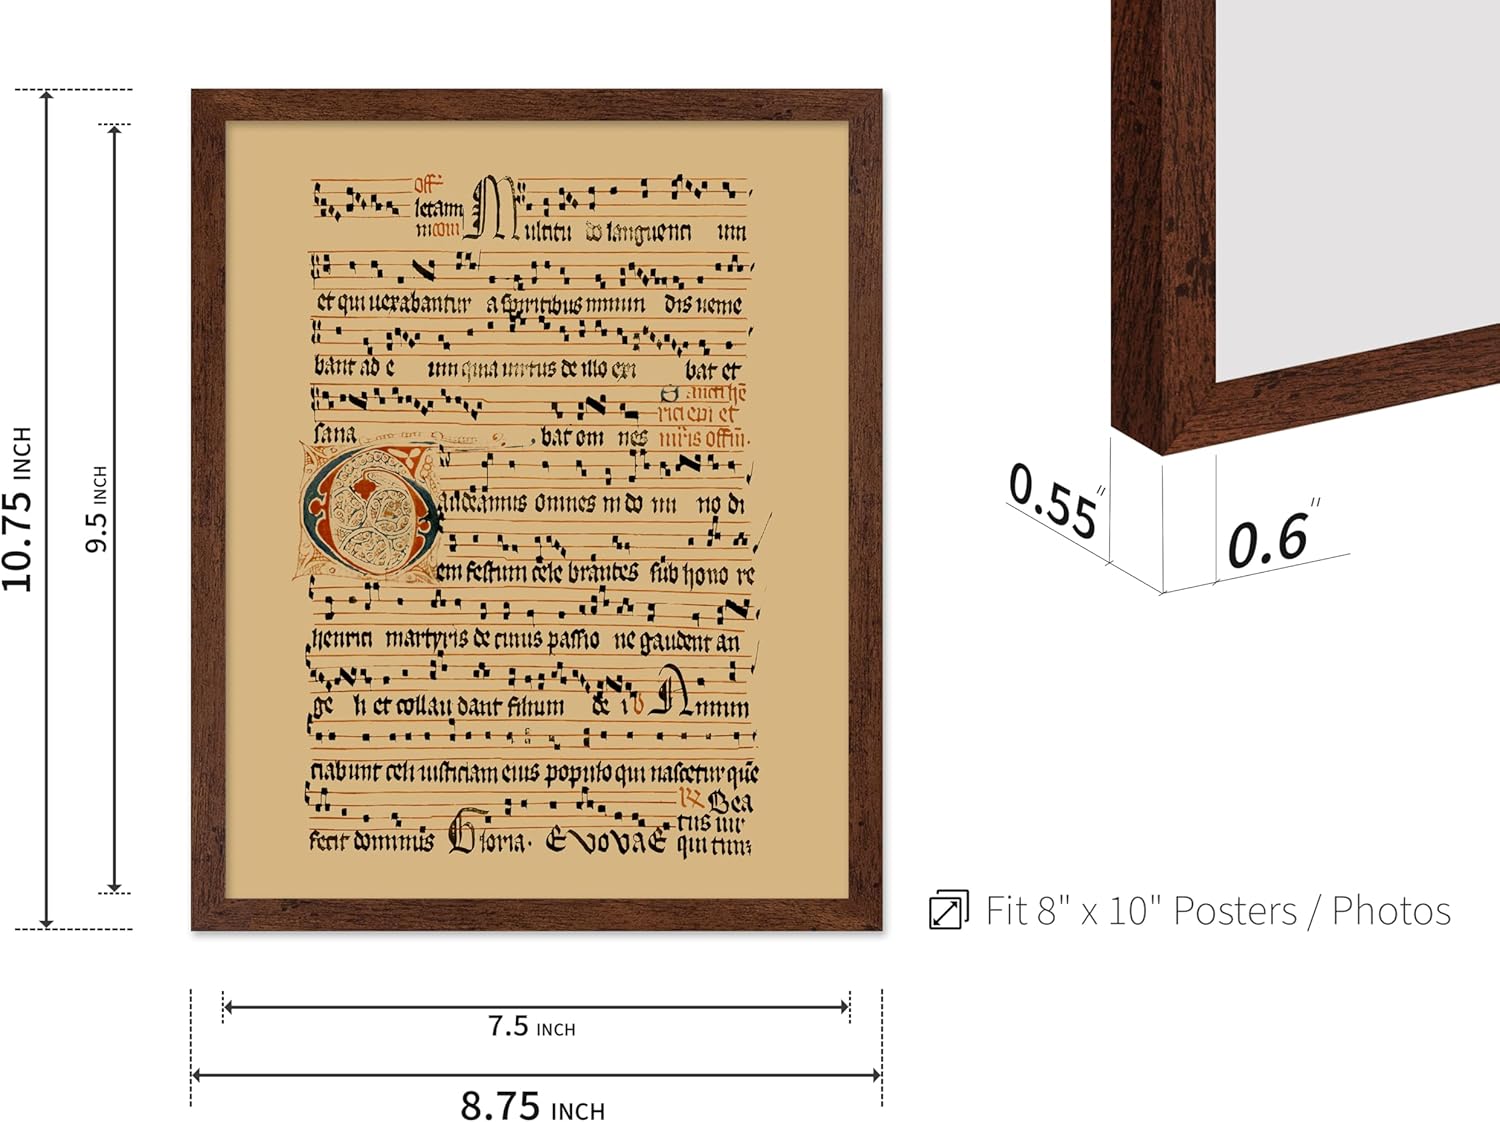 off
letamı
Multitu do languenti um
et qui uexabantur a spiritibus immun dis uenie
bant ad e um quia uirtus de illo exi bat et
Sancti he
rici epi et
sana bat om nes mris offm.
Gaudeamus omnes in do mi no di
em festum cele brantes sub hono re
henrici martyris de cuius passio ne gaudent an
ge li et collau dant filium de i Annun
ciabunt celi iusticiam eius populo qui nascetur que
Bea
tus uir
fecit dominus Gloria. EVOVAE qui tim
10.75 INCH
9.5 INCH
7.5 INCH
8.75 INCH
0.55"
0.6"
Fit 8" x 10" Posters / Photos